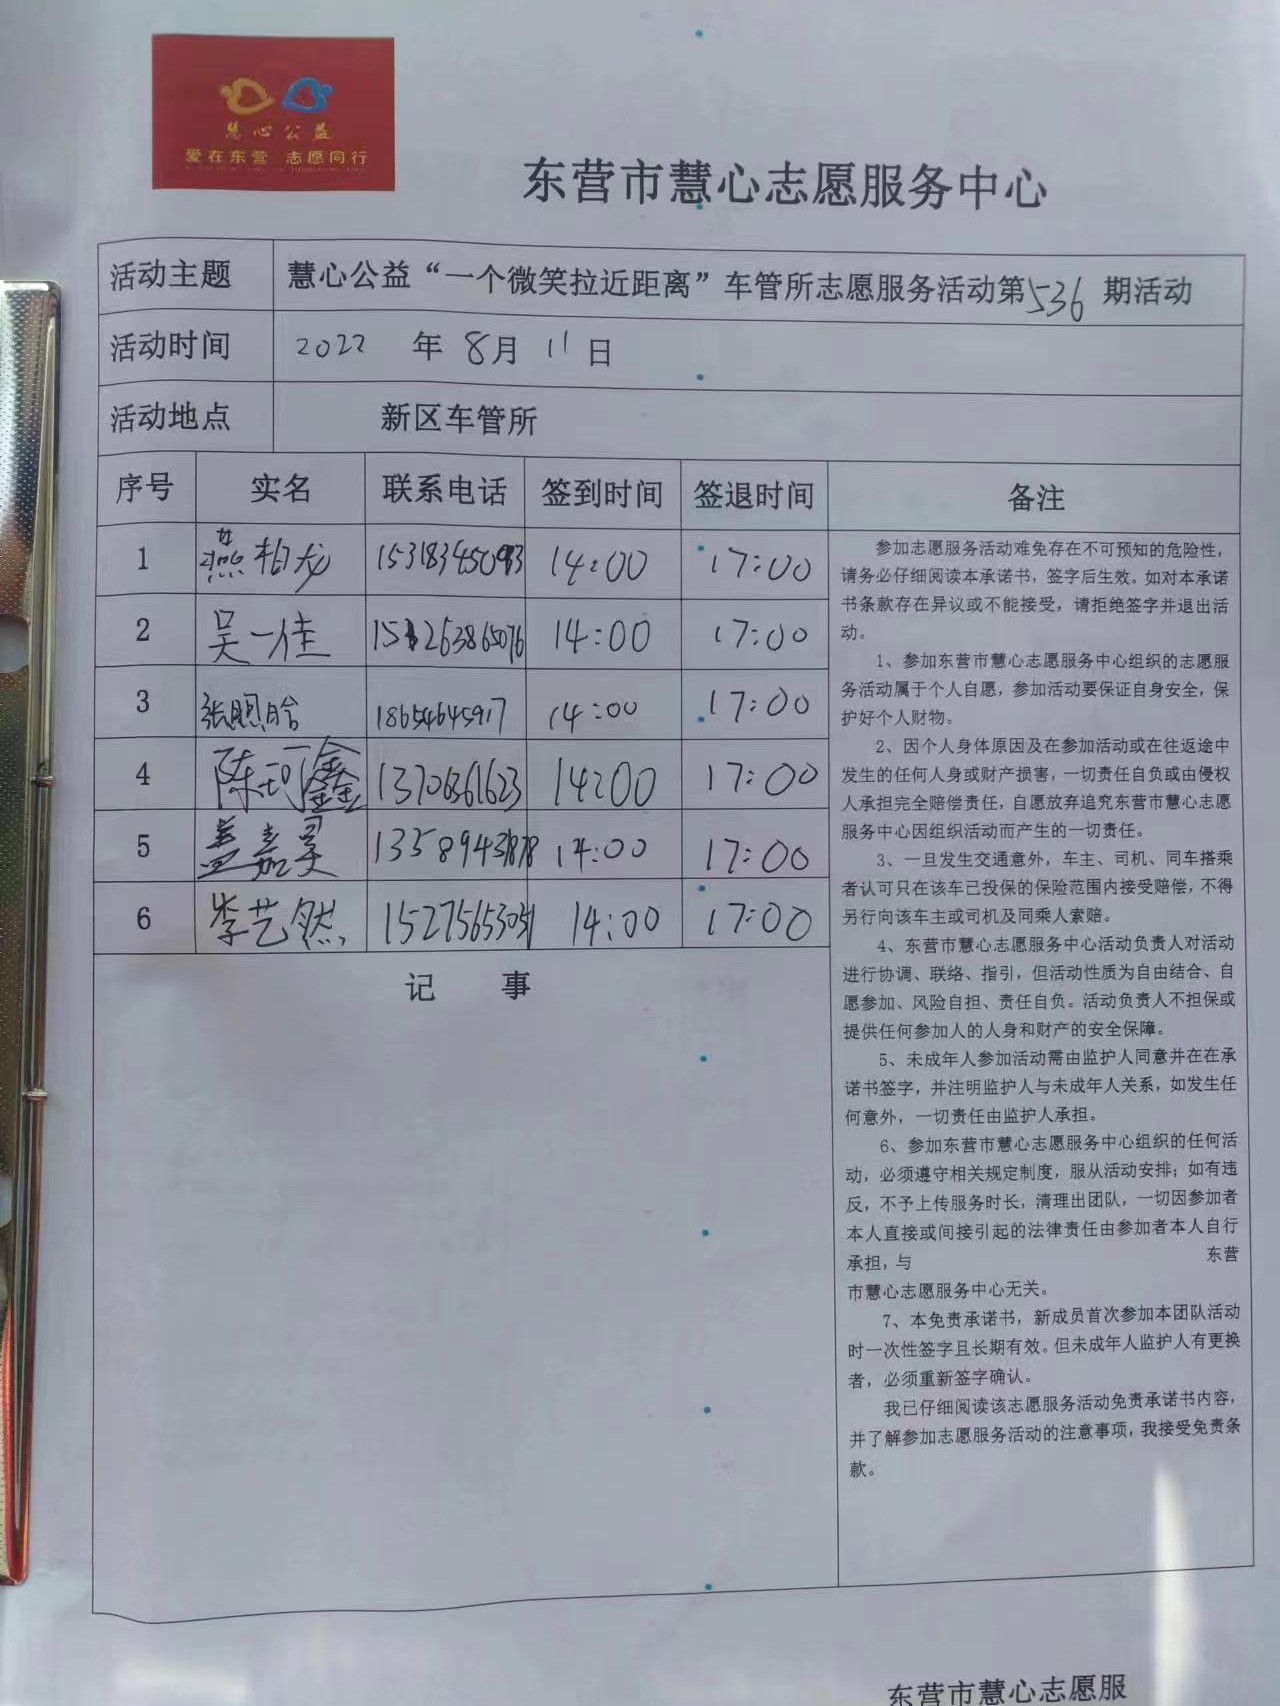 慧心公益
爱在东营 志愿同行
东营市慧心志愿服务中心
活动主题 慧心公益“一个微笑拉近距离”车管所志愿服务活动第536期活动
活动时间 2022 年 8月 11日
活动地点 新区车管所
序号 实名 联系电话 签到时间 签退时间 备注
1 燕柏龙 14:00 17:00
2 吴一佳 15263865076 14:00 17:00
3 18654645917 14:00 17:00
4 陈珂鑫 13706361623 14:00 17:00
5 盖嘉昊 14:00 17:00
6 李艺然 14:00 17:00
记 事
参加志愿服务活动难免存在不可预知的危险性，
请务必仔细阅读本承诺书，签字后生效。如对本承诺
书条款存在异议或不能接受，请拒绝签字并退出活
动。
1、参加东营市慧心志愿服务中心组织的志愿服
务活动属于个人自愿，参加活动要保证自身安全，保
护好个人财物。
2、因个人身体原因及在参加活动或在往返途中
发生的任何人身或财产损害，一切责任自负或由侵权
人承担完全赔偿责任，自愿放弃追究东营市慧心志愿
服务中心因组织活动而产生的一切责任。
3、一旦发生交通意外，车主、司机、同车搭乘
者认可只在该车已投保的保险范围内接受赔偿，不得
另行向该车主或司机及同乘人索赔。
4、东营市慧心志愿服务中心活动负责人对活动
进行协调、联络、指引，但活动性质为自由结合、自
愿参加、风险自担、责任自负。活动负责人不担保或
提供任何参加人的人身和财产的安全保障。
5、未成年人参加活动需由监护人同意并在在承
诺书签字，并注明监护人与未成年人关系，如发生任
何意外，一切责任由监护人承担。
6、参加东营市慧心志愿服务中心组织的任何活
动，必须遵守相关规定制度，服从活动安排；如有违
反，不予上传服务时长，清理出团队，一切因参加者
本人直接或间接引起的法律责任由参加者本人自行
承担，与 东营
市慧心志愿服务中心无关。
7、本免责承诺书，新成员首次参加本团队活动
时一次性签字且长期有效。但未成年人监护人有更换
者，必须重新签字确认。
我已仔细阅读该志愿服务活动免责承诺书内容，
并了解参加志愿服务活动的注意事项，我接受免责条
款。
东营市慧心志愿服